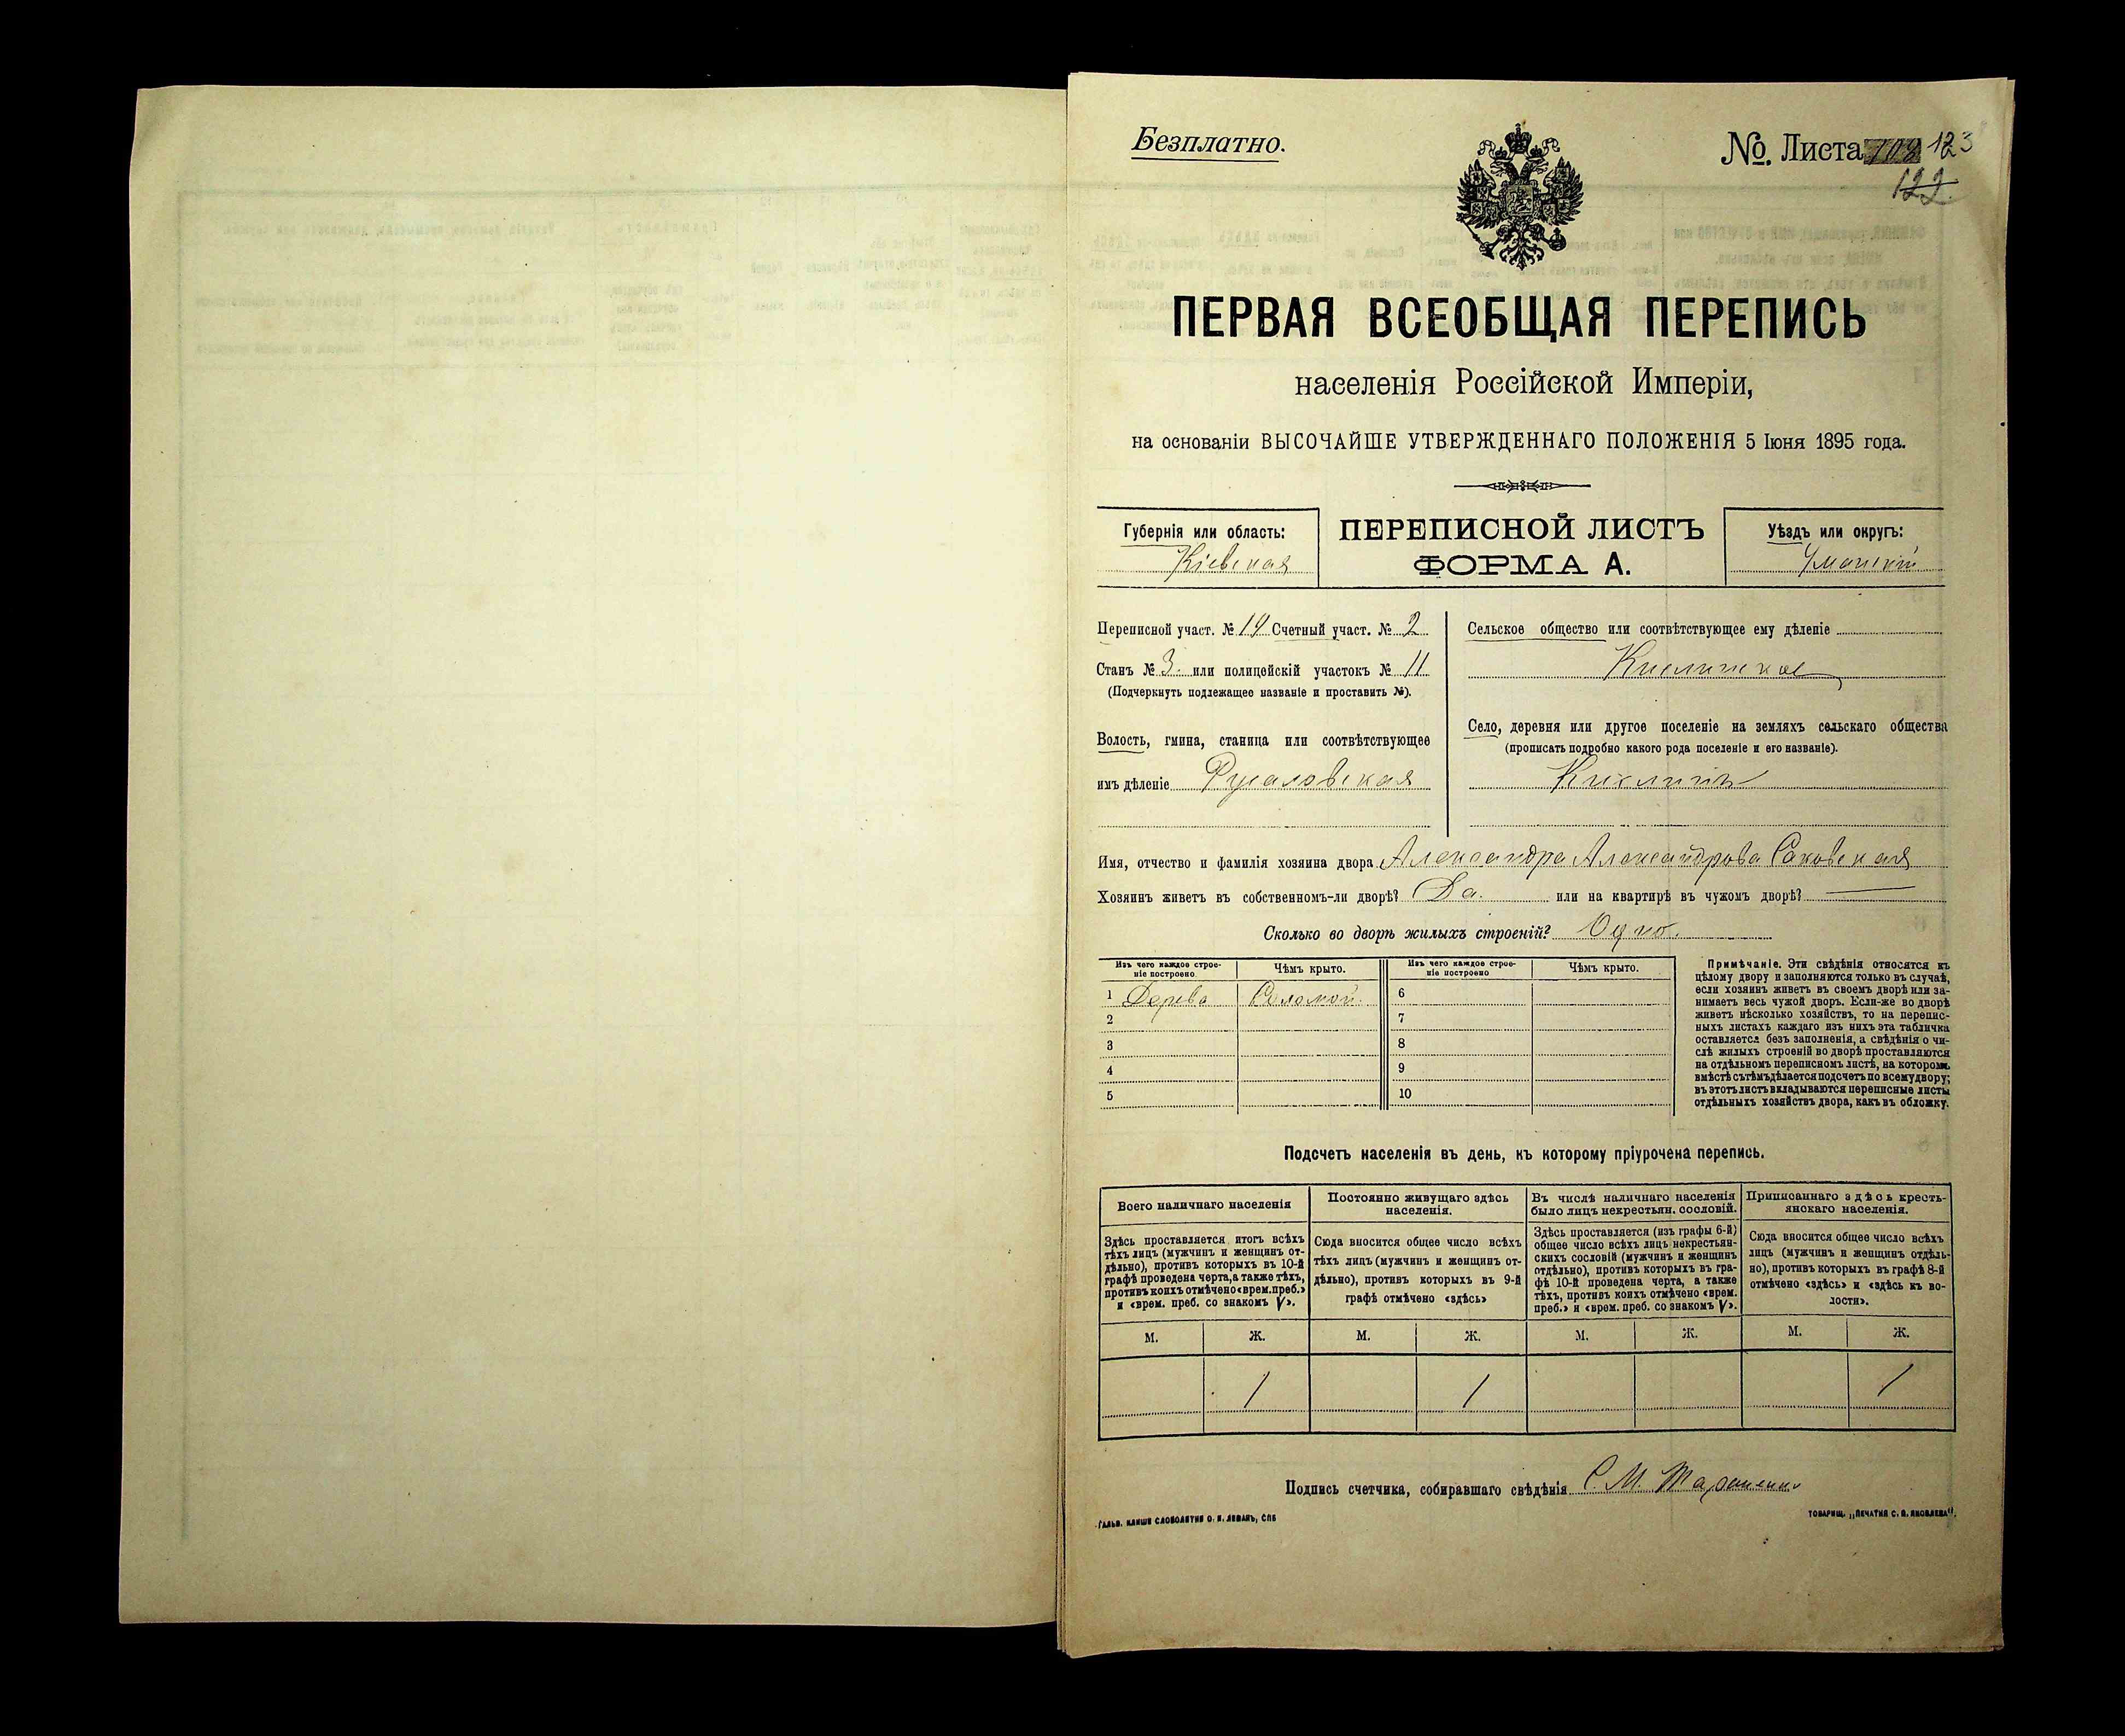 Безплатно.
№. Листа 123
122
ПЕРВАЯ ВСЕОБЩАЯ ПЕРЕПИСЬ
населенія Россійской Имперіи,
на основаніи ВЫСОЧАЙШЕ УТВЕРЖДЕННАГО ПОЛОЖЕНІЯ 5 Іюня 1895 года.
Губернія или область:
Кіевская
ПЕРЕПИСНОЙ ЛИСТЪ
ФОРМА А.
Уѣздъ или округъ:
Уманскій
Переписной участ. № 19 Счетный участ. № 2
Станъ № 3. или полицейскій участокъ № 11
(Подчеркнуть подлежащее названіе и проставить №).
Волость, гмина, станица или соотвѣтствующее
имъ дѣленіе Русаловская
Сельское общество или соотвѣтствующее ему дѣленіе
Кислинское
Село, деревня или другое поселеніе на земляхъ сельскаго общества
(прописать подробно какого рода поселеніе и его названіе).
Кислинъ
Имя, отчество и фамилія хозяина двора Александра Александрова Саковская
Хозяинъ живетъ въ собственномъ-ли дворѣ? Да. или на квартирѣ въ чужомъ дворѣ?
Сколько во дворѣ жилыхъ строеній? Одно.
Изъ чего каждое строе-
ніе построено
Чѣмъ крыто.
Изъ чего каждое строе-
ніе построено
Чѣмъ крыто.
1 Дерева Соломой. 6
2 7
3 8
4 9
5 10
Примѣчаніе. Эти свѣдѣнія относятся къ
цѣлому двору и заполняются только въ случаѣ,
если хозяинъ живетъ въ своемъ дворѣ или за-
нимаетъ весь чужой дворъ. Если-же во дворѣ
живетъ нѣсколько хозяйствъ, то на перепис-
ныхъ листахъ каждаго изъ нихъ эта табличка
оставляется безъ заполненія, а свѣдѣнія о чи-
слѣ жилыхъ строеній во дворѣ проставляются
на отдѣльномъ переписномъ листѣ, на которомъ
вмѣстѣ съ тѣмъ дѣлается подсчетъ по всему двору;
въ этотъ листъ вкладываются переписные листы
отдѣльныхъ хозяйствъ двора, какъ въ обложку.
Подсчетъ населенія въ день, къ которому пріурочена перепись.
Всего наличнаго населенія
Здѣсь проставляется итогъ всѣхъ
тѣхъ лицъ (мужчинъ и женщинъ от-
дѣльно), противъ которыхъ въ 10-й
графѣ проведена черта, а также тѣхъ,
противъ коихъ отмѣчено «врем. преб.»
и «врем. преб. со знакомъ V».
Постоянно живущаго здѣсь
населенія.
Сюда вносится общее число всѣхъ
тѣхъ лицъ (мужчинъ и женщинъ от-
дѣльно), противъ которыхъ въ 9-й
графѣ отмѣчено «здѣсь»
Въ числѣ наличнаго населенія
было лицъ некрестьян. сословій.
Здѣсь проставляется (изъ графы 6-й)
общее число всѣхъ лицъ некрестьян-
скихъ сословій (мужчинъ и женщинъ
отдѣльно), противъ которыхъ въ гра-
фѣ 10-й проведена черта, а также
тѣхъ, противъ коихъ отмѣчено «врем.
преб.» и «врем. преб. со знакомъ V».
Приписаннаго здѣсь кресть-
янскаго населенія.
Сюда вносится общее число всѣхъ
лицъ (мужчинъ и женщинъ отдѣль-
но), противъ которыхъ въ графѣ 8-й
отмѣчено «здѣсь» и «здѣсь къ во-
лости».
М. Ж. М. Ж. М. Ж. М. Ж.
1 1 1
Подпись счетчика, собиравшаго свѣдѣнія С. М.
ТОВАРИЩ. „ПЕЧАТНЯ С. П. ЯКОВЛЕВА".